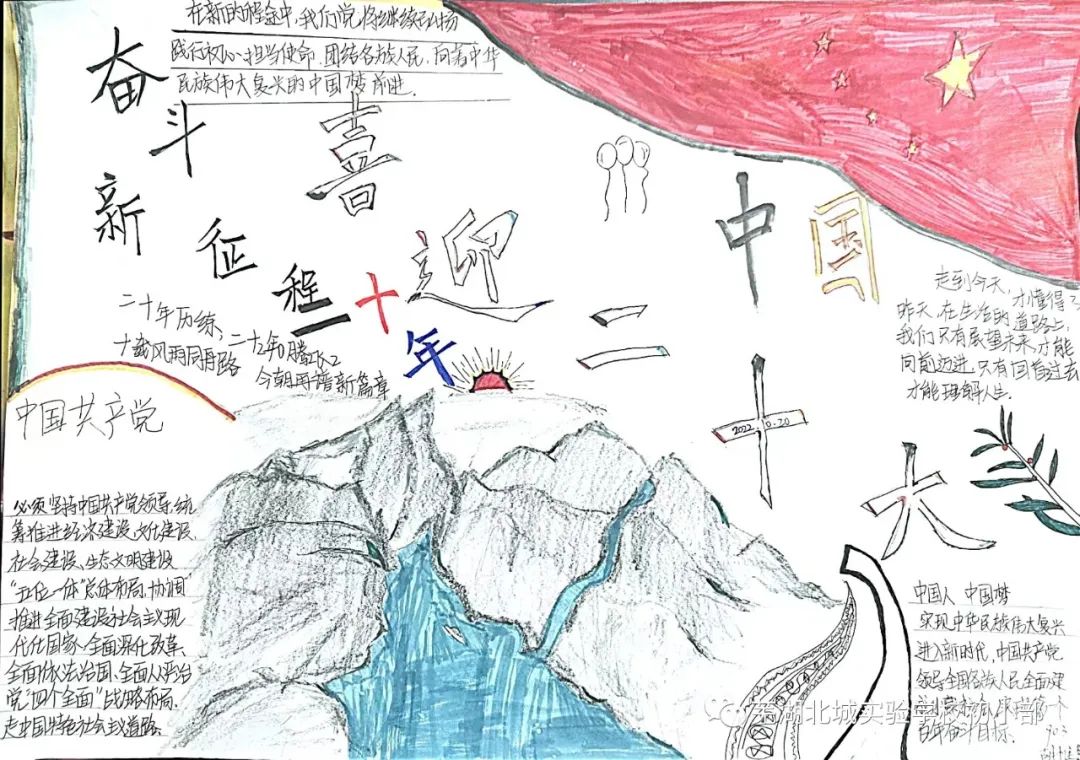 在新的征程中,我们党将继续弘扬
践行初心、担当使命、团结各族人民,向着中华
民族伟大复兴的中国梦前进.
奋斗
新征程
二十年
喜迎二十大
中国
2022.10.20
二十年历练、
十载风雨同路
今朝再谱新篇章
中国共产党
必须坚持中国共产党领导,统
筹推进经济建设、文化建设、
社会建设、生态文明建设
"五位一体"总体布局,协调
推进全面建设社会主义现
代化国家、全面深化改革、
全面依法治国、全面从严治
党"四个全面"战略布局,
走中国特色社会主义道路.
走到今天,才懂得了
昨天,在生活的道路上,
我们只有展望未来,才能
向前迈进,只有回首过去
才能理解人生.
中国人 中国梦
实现中华民族伟大复兴
进入新时代,中国共产党
领导全国各族人民全面建
百年奋斗目标.
903
北城实验学校初小部